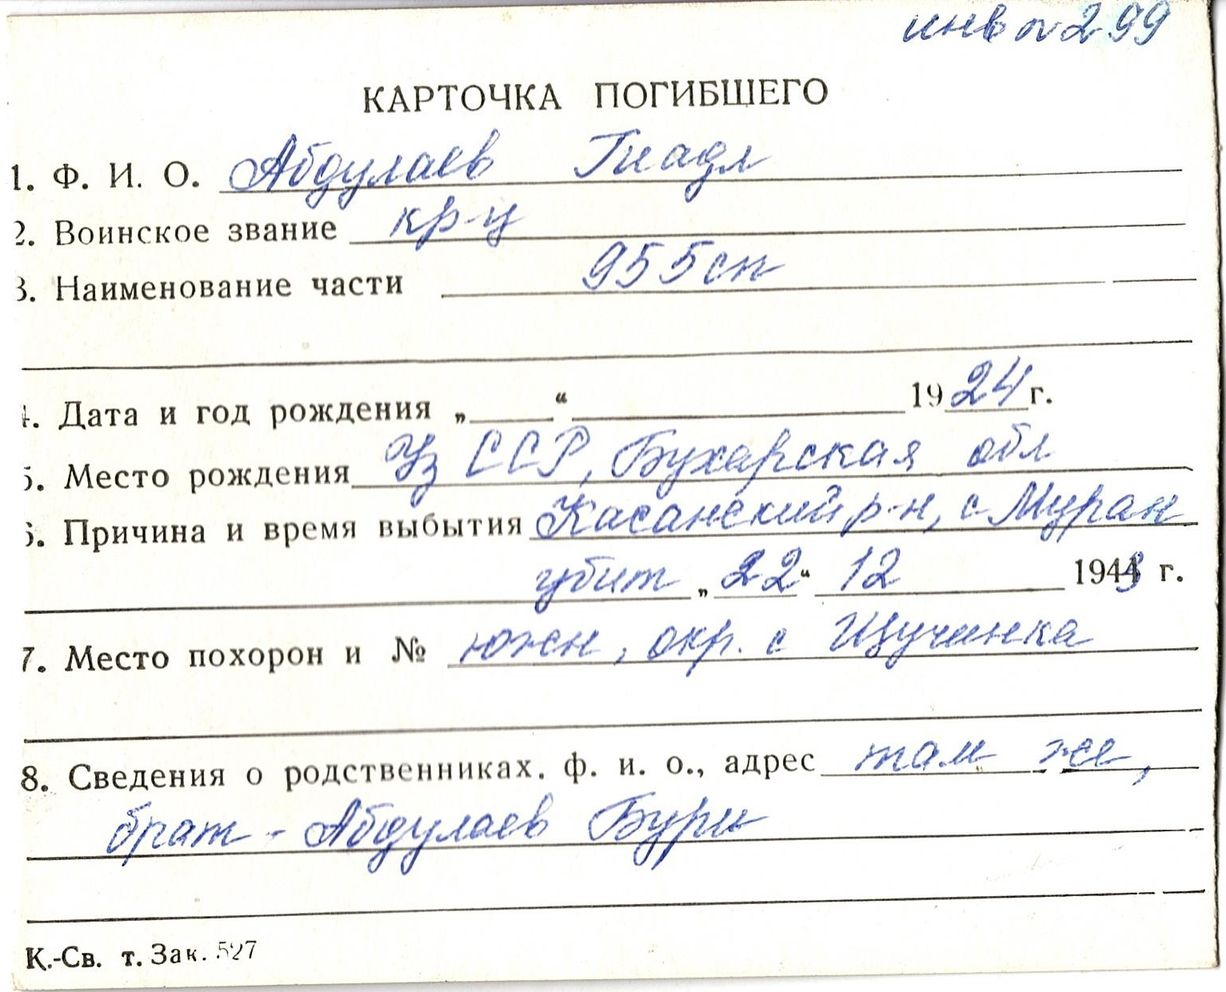 инв № 299
КАРТОЧКА ПОГИБШЕГО
1. Ф. И. О. Абдулаев Гиадл
2. Воинское звание кр-ц
3. Наименование части 955сп
4. Дата и год рождения „ “ 1924 г.
5. Место рождения Уз ССР, Бухарская обл
6. Причина и время выбытия Касанский р-н, с Муран
убит „22“ 12 1943 г.
7. Место похорон и № южн, окр. с Щучинка
8. Сведения о родственниках. ф. и. о., адрес там же,
брат - Абдулаев Бури
К.-Св. т. Зак. 527